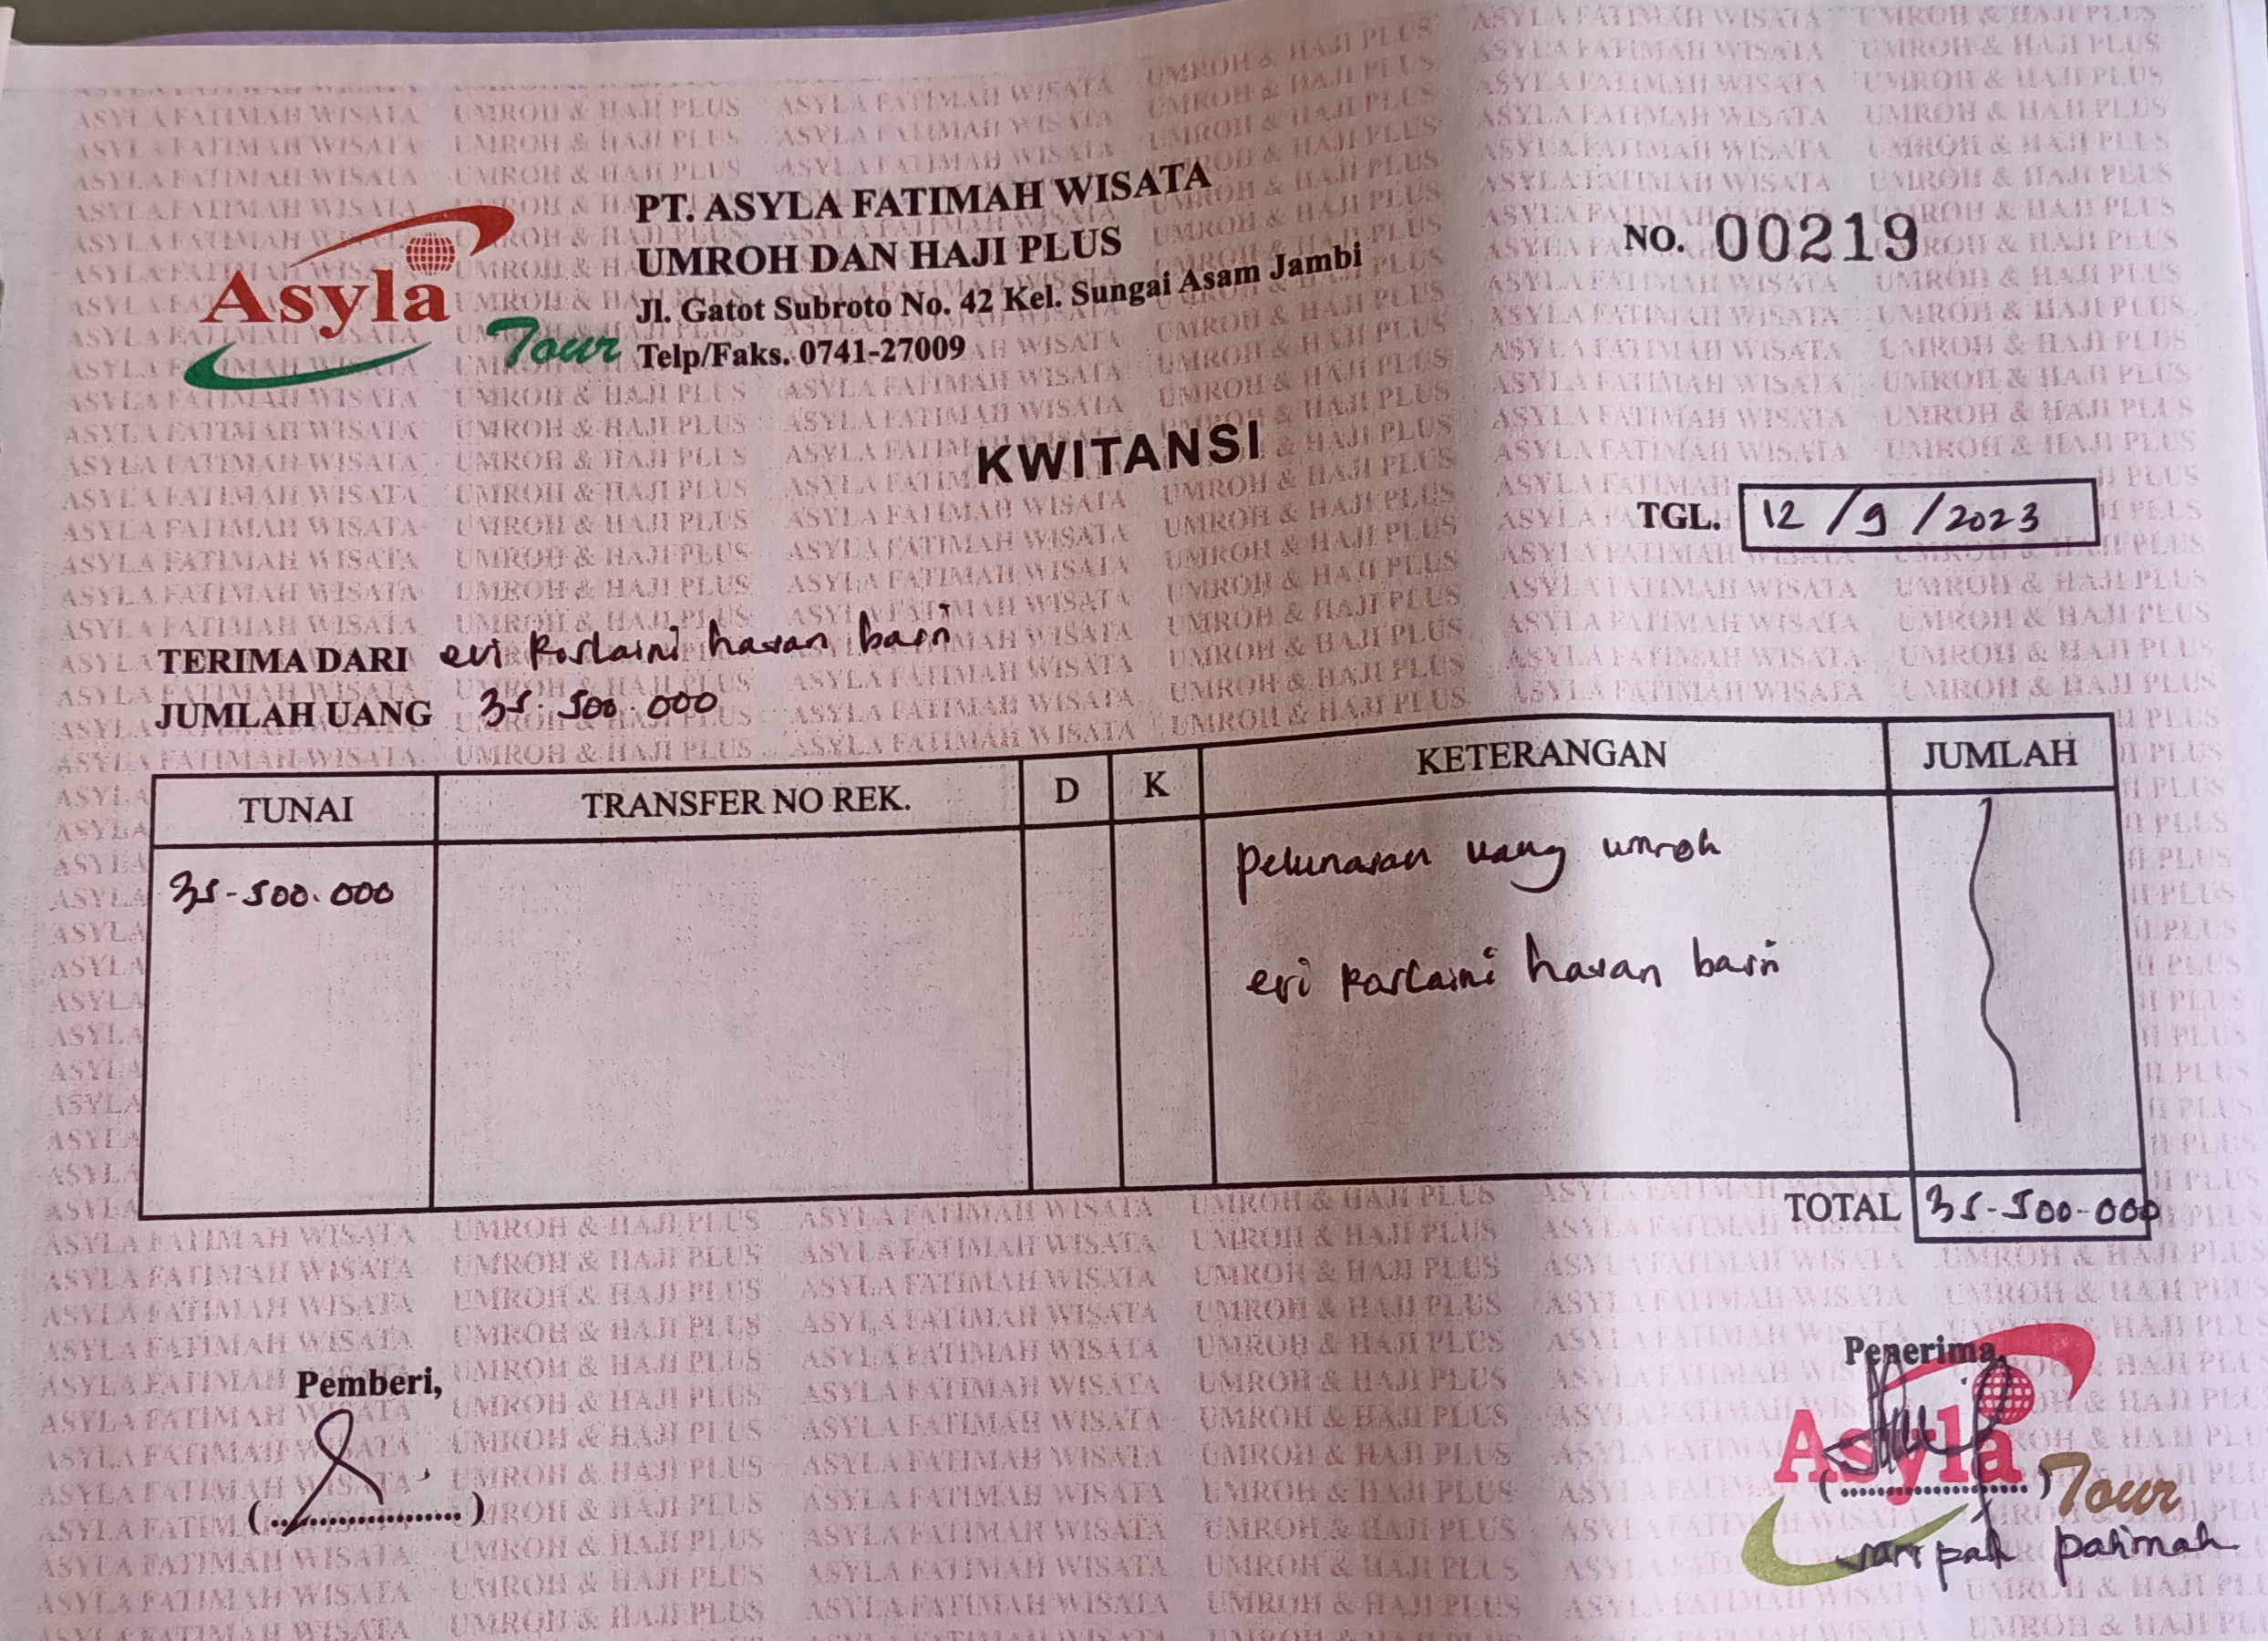 Asyla Tour
PT. ASYLA FATIMAH WISATA
UMROH DAN HAJI PLUS
Jl. Gatot Subroto No. 42 Kel. Sungai Asam Jambi
Telp/Faks. 0741-27009
NO. 00219
KWITANSI
TGL. 12/9/2023
TERIMA DARI eri Roslaini hasan basri
JUMLAH UANG 35.500.000
TUNAI TRANSFER NO REK. D K KETERANGAN JUMLAH
35-500.000 pelunasan uang umroh
eri Roslaini hasan basri
TOTAL 35-500-000
Pemberi,
Penerima,
(....................)
(....................)
Asyla Tour
patimah